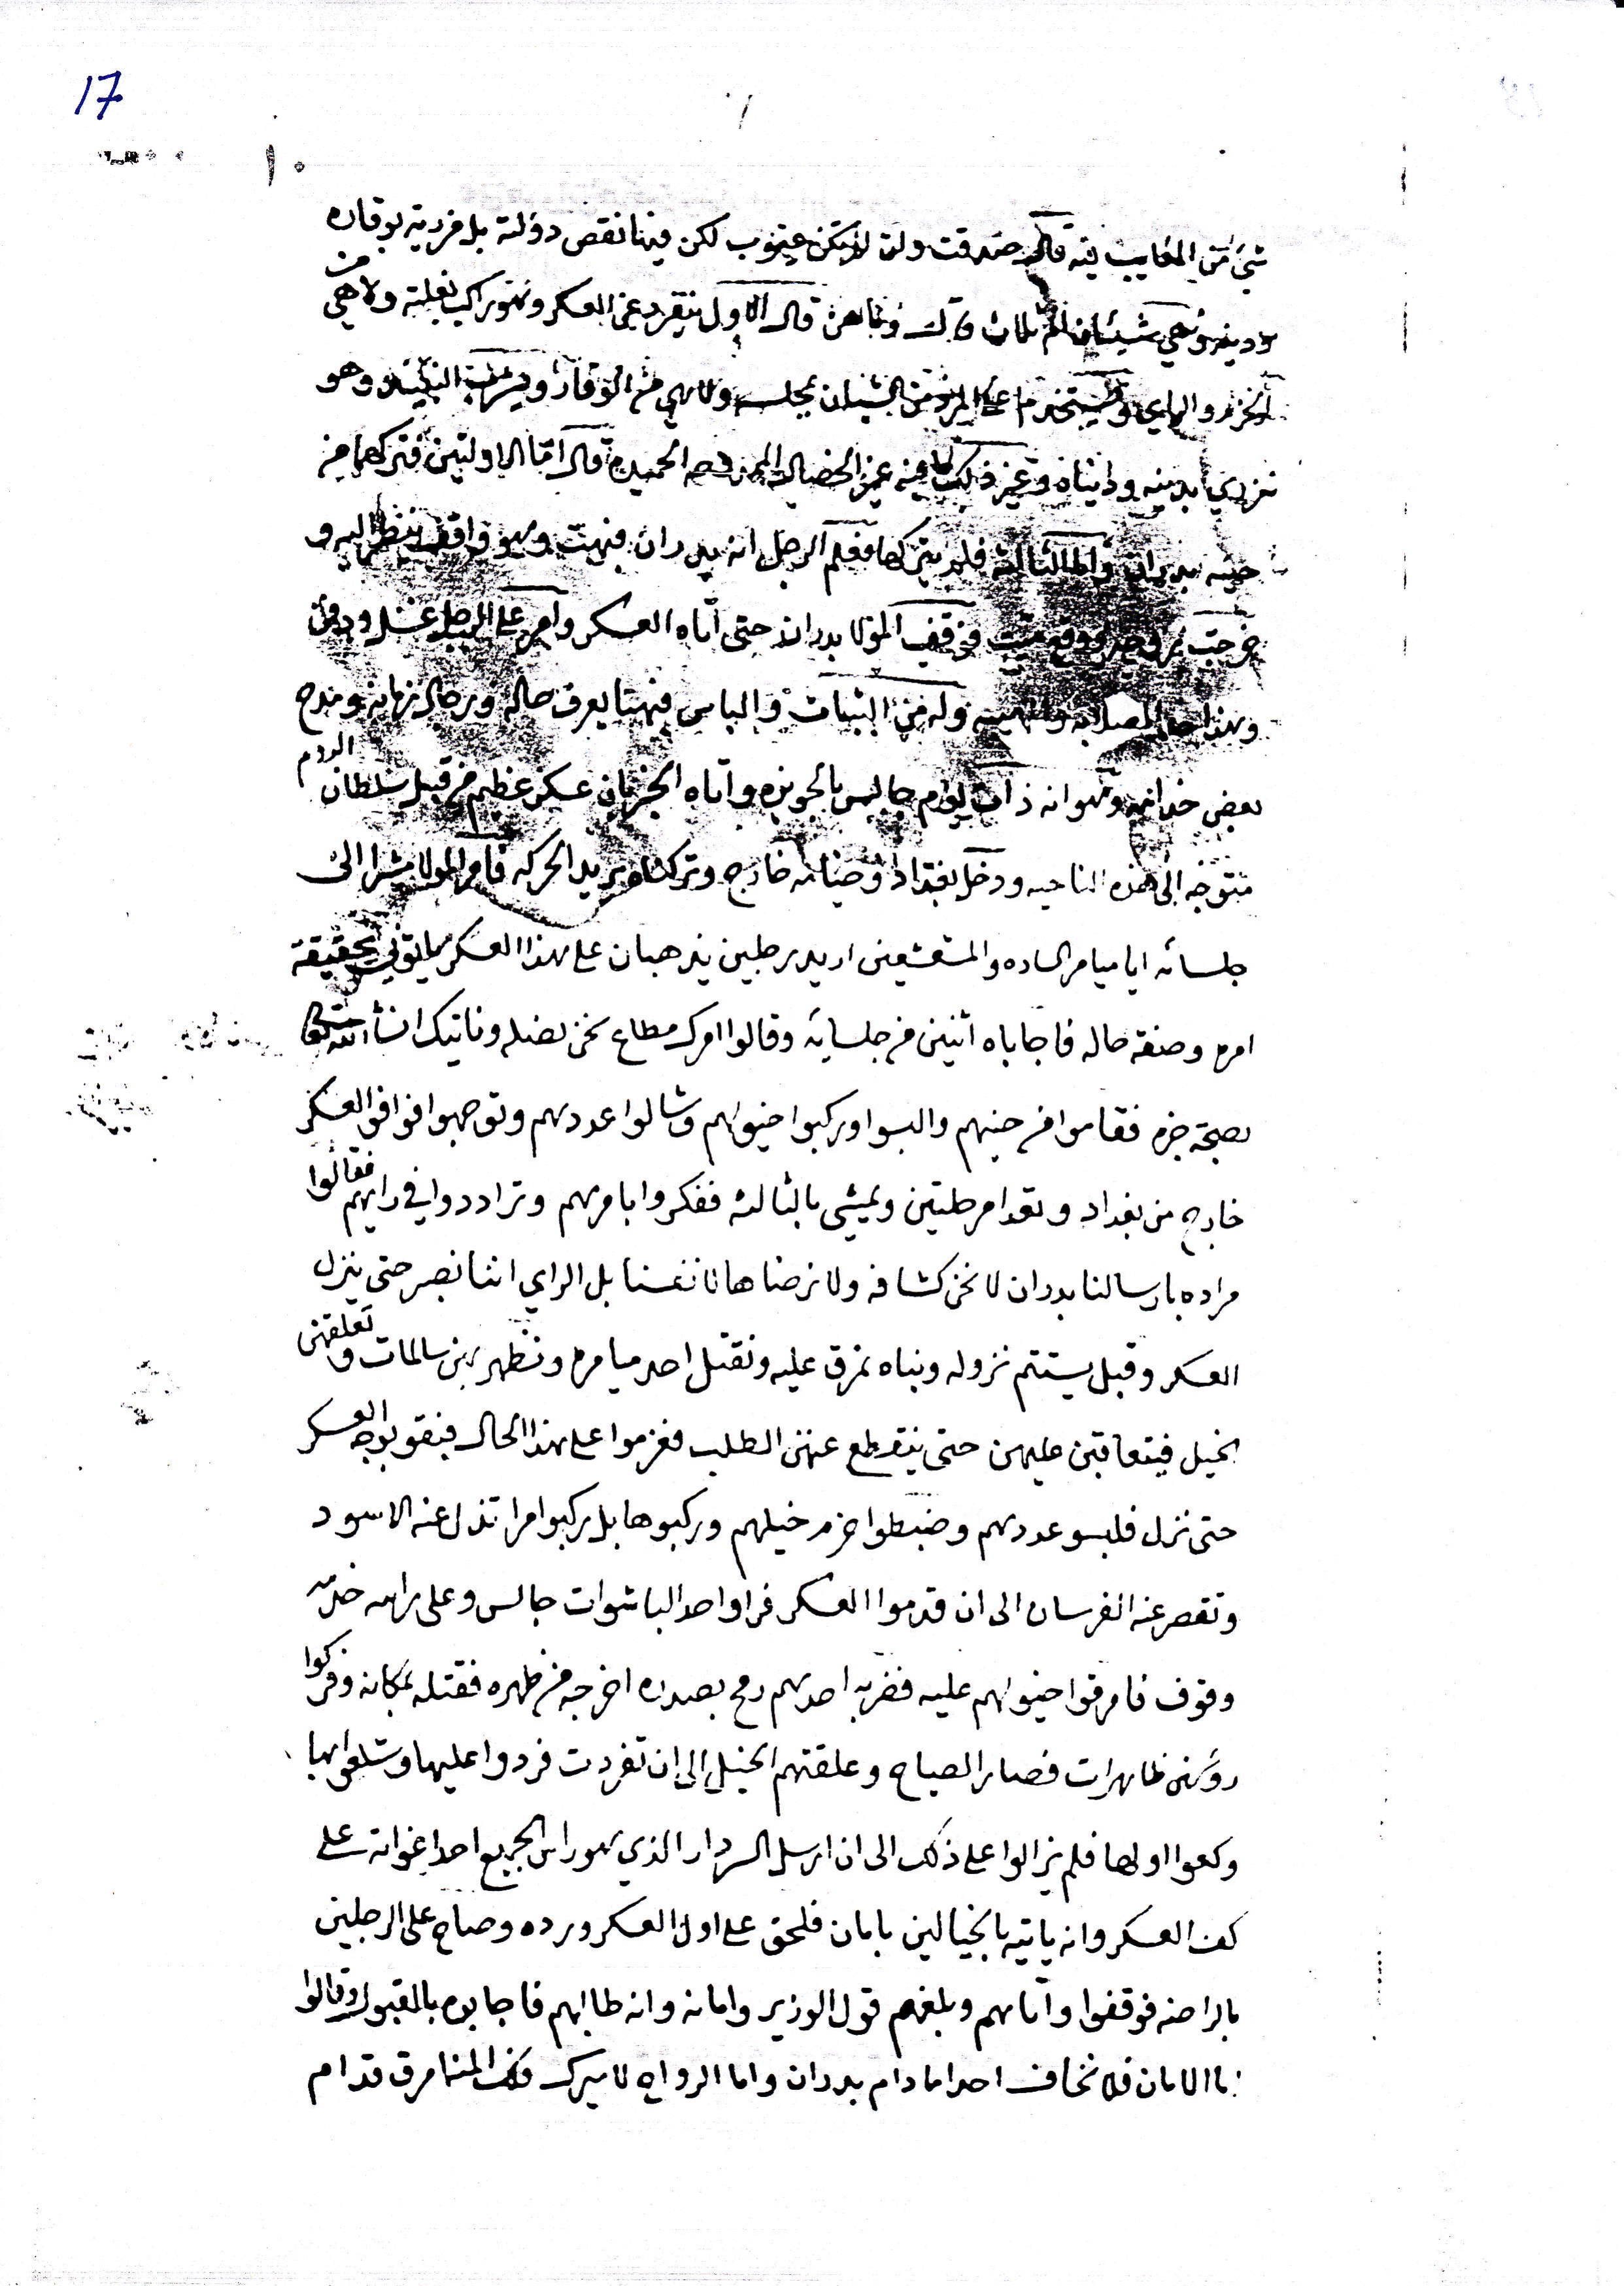 17
١٠
شيء من المعايب فيه قال صدقت ولن لا يكن عيوب لكن فيها نقص دولته بل مزرية بوقاره
ثلاث قال وما هن قال الاول ينفرد عن العسكر وهو راكب بغلته ولا هي من
الحزم والراي ويستخدم المرد من الشبان بمجلسه ولا هي من الوقار ويشرب النبيذ وهو
مزري بدينه ودنياه وغير ذلك قال اما الاولتين فتركهما من
حينه بدران واما الثالثه فلم يتركها فعلم الرجل انه بدران فبهت وهو واقف ينظر اليه و
خرجت روحه ووقع ميت فوقف المولا بدران حتى اتاه العسكر وامر على الرجل غسل ودفن
وهذا حال وله من الثبات والباس فيهما يعرف حاله ورجال زمانه ومدح
بعض خدامه وهو انه ذات يوم جالس بالحويزه واتاه الخبر بان عسكر عظيم من قبل سلطان الروم
متوجه الى هذه الناحيه ودخل بغداد وخيامه خارج وتركناه يريد الحركه فامر المولا مشيرا الى
جلسائه ايا ميامر الساده والمشعشعين اريد رجلين يذهبان على هذا العسكر ياتوني بحقيقة
امره وصفة حاله فاجاباه اثنين من جلسايه وقالوا امرك مطاع نحن نصله وناتيك انشا الله تعالى
بصحة خبره فقاموا من حينهم والبسوا وركبوا خيولهم وشالوا عددهم وتوجهوا فوافوا العسكر
خارج من بغداد وتعدا مرحلتين ويمشي بالثالثه ففكروا بامرهم وتراددوا في رايهم فقالوا
مراده بارسالنا بدران لا نحن كشافه ولا نرضاها لانفسنا بل الراي اننا نصبر حتى ينزل
العسكر وقبل يستتم نزوله وبناه نمرق عليه ونقتل احد ميامره ونظهر بهن سالمات وتعلقهن
الخيل فيتعاقبن عليهن حتى ينقطع عنهن الطلب فعزموا على هذا الحال فبقو بوجه العسكر
حتى نزل فلبسو عددهم وضبطوا حزم خيلهم وركبوها بل ركبوا امرا تذل عنه الاسود
وتقصر عنه الفرسان الى ان قدموا العسكر فراوا احد الباشوات جالس وعلى راسه خدمه
وقوف فامرقوا خيولهم عليه فضربه احدهم رمح بصدره اخرجه من ظهره فقتله بمكانه وفركوا
روسهن ظاهرات فصار الصياح وعلقتهم الخيل الى ان تفردت فردوا عليها وشلعوا بها
وكعوا اولها فلم يزالوا على ذلك الى ان ارسل السردار الذي هو راس الجميع احد اغواته على
كف العسكر وانه ياتيه بالخيالين بامان فلحق على اول العسكر ورده وصاح على الرجلين
بالراحه فوقفوا واتاهم وبلغهم قول الوزير وامانه وانه طالبهم فاجابوه بالقبول وقالوا
اما الامان فلا نخاف احد ما دام بدران واما الرواح لاميرك فكف المنا مرق قدام